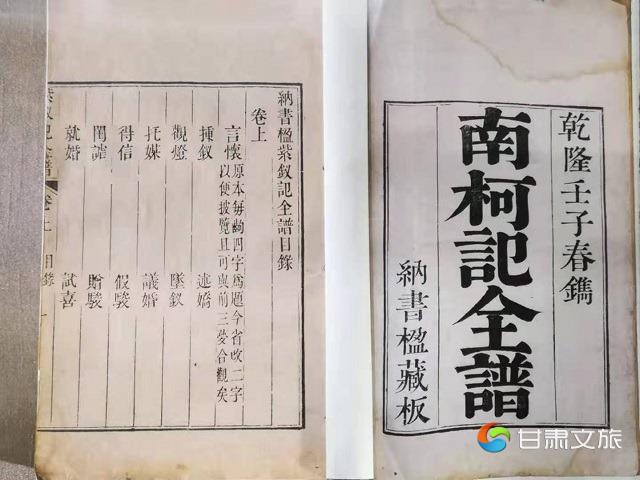 乾隆壬子春鐫
南柯記全譜
納書楹藏板
納書楹紫釵記全譜目錄
卷上
言懷 原本每齣四字爲題今省改二字
以便披覽且可與前三夢合觀矣
插釵 述嬌
觀燈 墜釵
托媒 議婚
得信 假駿
閨謔 贈駿
就婚 試喜
紫釵記全譜 卷上 目錄 一
甘肃文旅